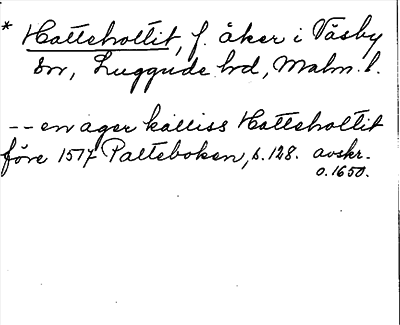 * Hatteholtit, f. åker i Väsby
sn, Luggude hd, Malm. l.
-- en ager kalliss Hatteholtit
före 1517 Palteboken, s. 128. avskr.
o. 1650.